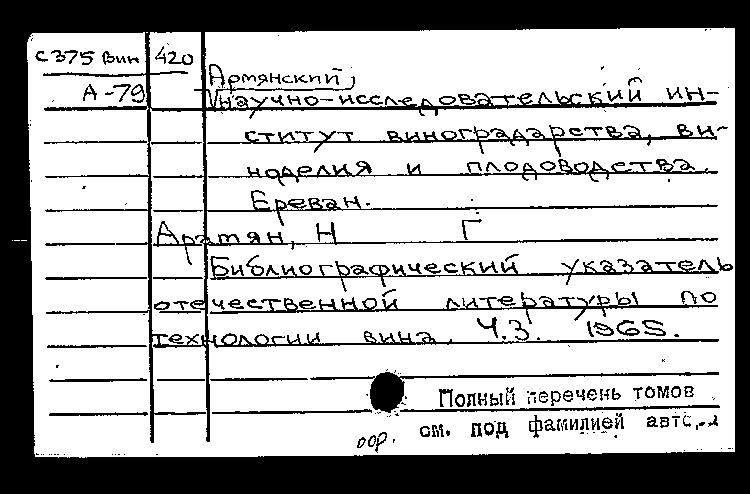 С375 Вин 420
Армянский
А-79 научно-исследовательский ин-
ститут виноградарства, ви-
ноделия и плодоводства.
Ереван.
Аратян, Н Г
Библиографический указатель
отечественной литературы по
технологии вина. Ч.3. 1965.
Полный перечень томов
см. под фамилией